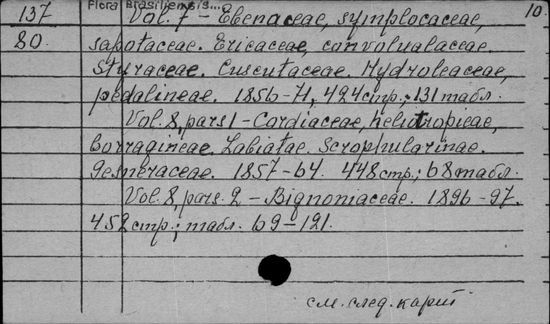 137 Flora Brasiliensis... 10.
Vol. 7 - Ebenaceae, symplocaceae,
80. sapotaceae. Ericaceae, convolvulaceae.
Styraceae. Cuscutaceae. Hydroleaceae,
pedalineae. 1856-71, 424 стр.; 131 табл.
Vol. 8, pars 1 - Cordiaceae, heliotropieae,
Borragineae. Labiatae. Scrophularinae.
gesneraceae. 1857-64. 448 стр.; 68 табл.
Vol. 8, pars. 2 - Bignoniaceae. 1896-97.
452 стр.; табл. 69-121.
см. след. карт